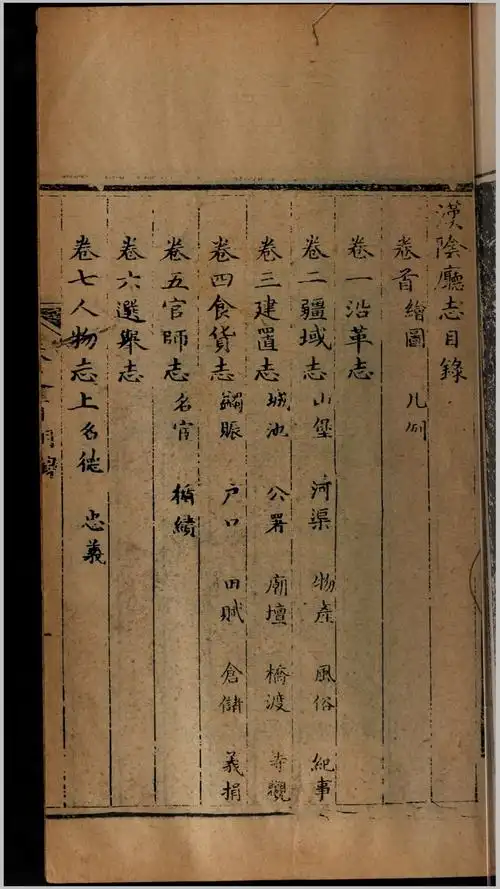 漢陰廳志目錄
卷首繪圖 凡例
卷一沿革志
卷二疆域志 山堡 河渠 物產 風俗 紀事
卷三建置志 城池 公署 廟壇 橋渡 寺觀
卷四食貨志 蠲賑 戶口 田賦 倉儲 義捐
卷五官師志 名宦 循績
卷六選舉志
卷七人物志上名 忠義